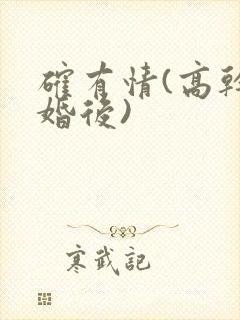 確有情(高幹
婚後)
寒武記